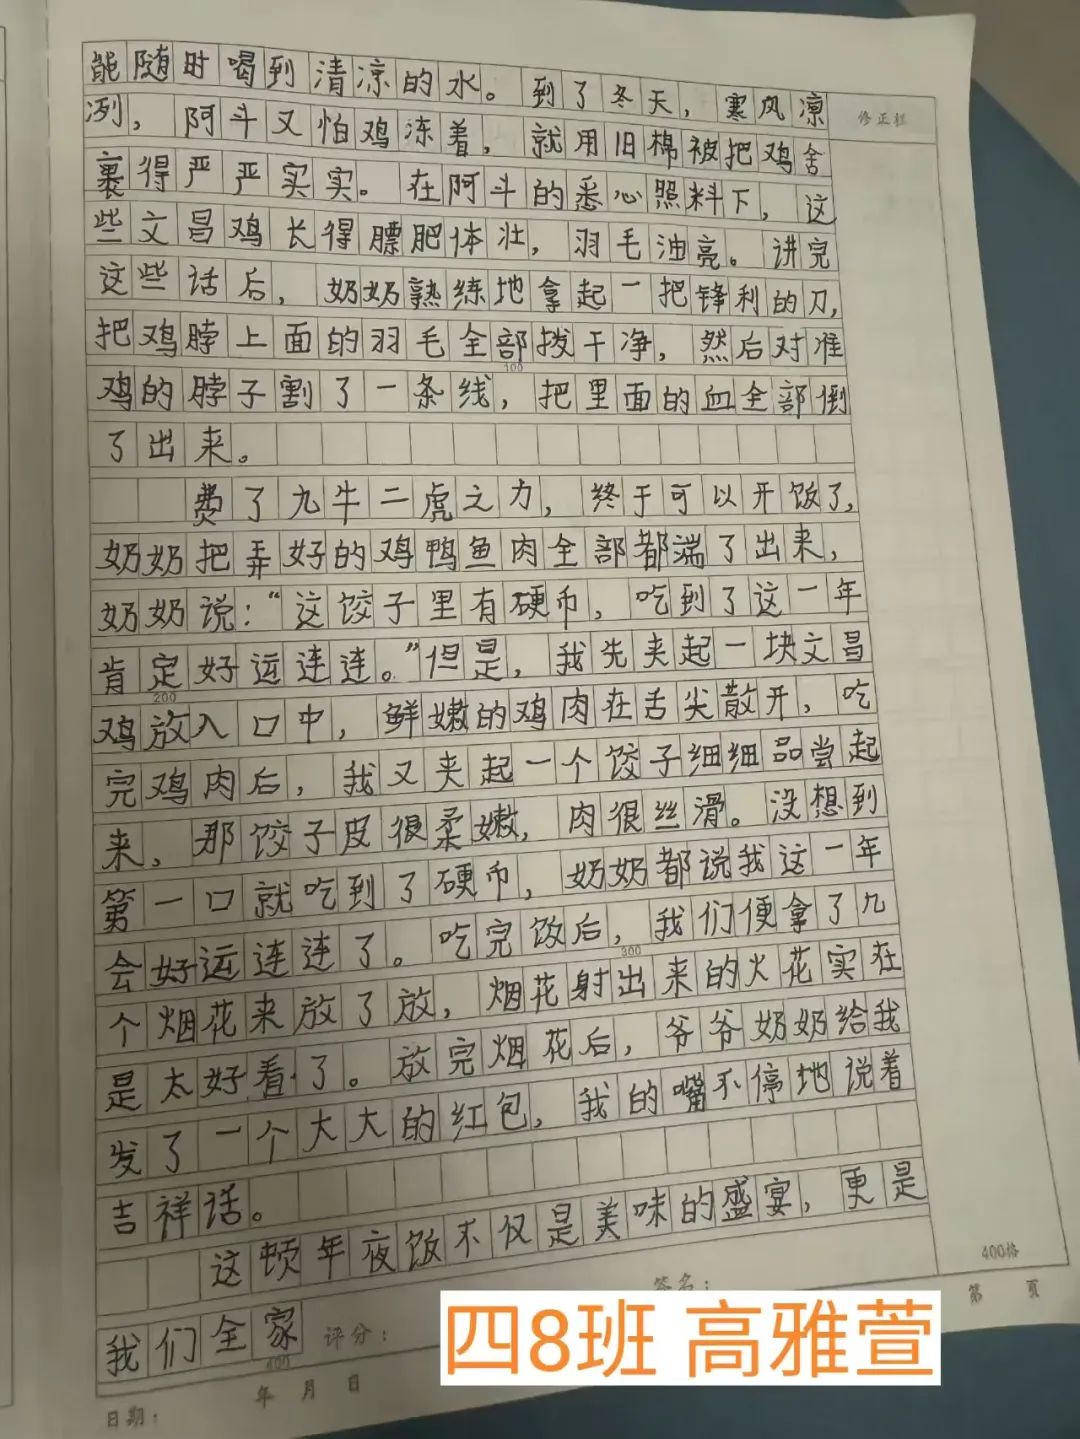 能随时喝到清凉的水。到了冬天，寒风凛
冽，阿斗又怕鸡冻着，就用旧棉被把鸡舍
裹得严严实实。在阿斗的悉心照料下，这
些文昌鸡长得膘肥体壮，羽毛油亮。讲完
这些话后，奶奶熟练地拿起一把锋利的刀，
把鸡脖上面的羽毛全部拨干净，然后对准
100
鸡的脖子割了一条线，把里面的血全部倒
了出来。
费了九牛二虎之力，终于可以开饭了，
奶奶把弄好的鸡鸭鱼肉全部都端了出来，
奶奶说：“这饺子里有硬币，吃到了这一年
肯定好运连连。”但是，我先夹起一块文昌
200
鸡放入口中，鲜嫩的鸡肉在舌尖散开，吃
完鸡肉后，我又夹起一个饺子细细品尝起
来，那饺子皮很柔嫩，肉很丝滑。没想到
第一口就吃到了硬币，奶奶都说我这一年
会好运连连了。吃完饭后，我们便拿了几
300
个烟花来放了放，烟花射出来的火花实在
是太好看了。放完烟花后，爷爷奶奶给我
发了一个大大的红包，我的嘴不停地说着
吉祥话。
这顿年夜饭不仅是美味的盛宴，更是
我们全家
400
修正栏
400格
签名：
第 页
评分：
日期： 年 月 日
四8班 高雅萱